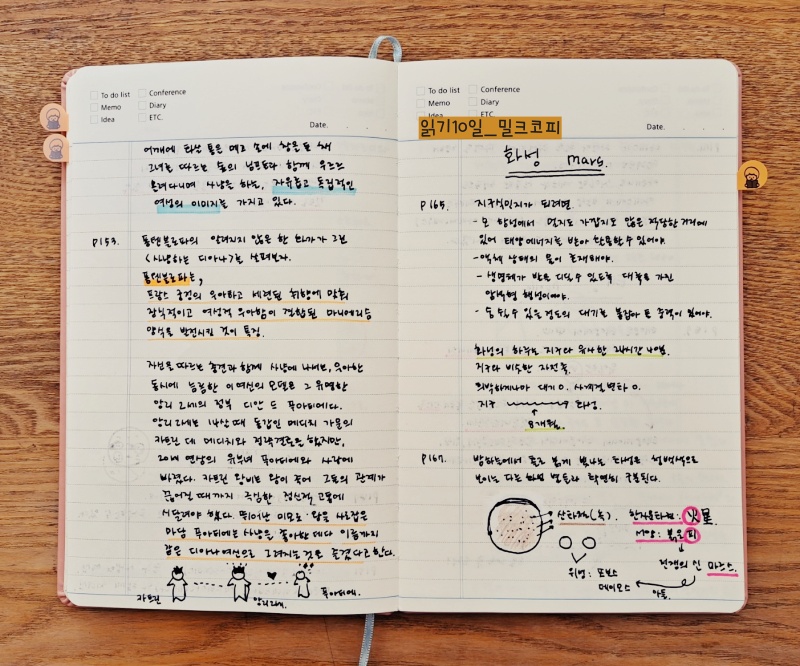 To do list
Conference
Memo
Diary
Idea
ETC.
Date.
어깨에 화살 통을 메고 손에 창을 든 채
그녀를 따르는 숲의 님프들과 함께 우르르
몰려다니며 사냥을 하는, 자유롭고 독립적인
여성의 이미지를 가지고 있다.
P153. 퐁텐블로파의 알려지지 않은 한 화가가 그린
<사냥하는 디아나>를 살펴보자.
퐁텐블로파는,
프랑스 궁정의 우아하고 세련된 취향에 맞춰
장식적이고 여성적 우아함이 결합된 마니에리슴
양식을 발전시킨 것이 특징.
자신을 따르는 충견과 함께 사냥에 나서는, 우아한
동시에 늠름한 이 여신의 모델은 그 유명한
앙리 2세의 정부 디안 드 푸아티에다.
앙리 2세는 14살 때 동갑인 메디치 가문의
카트린 데 메디치와 정략결혼을 했지만,
20세 연상의 유부녀 푸아티에와 사랑에
빠졌다. 카트린 왕비는 왕이 죽어 그들의 관계가
끊어질 때까지 극심한 정신적 고통에
시달려야 했다. 뛰어난 미모로 왕을 사로잡은
마담 푸아티에는 사냥을 좋아한 데다 이름까지
같은 디아나 여신으로 그려지는 것을 즐겼다고 한다.
카트린
앙리2세.
푸아티에.
To do list
Conference
Memo
Diary
Idea
ETC.
읽기10일_밀크코피
Date.
화성 Mars.
P165. 지구형인지가 되려면
- 모 항성에서 멀지도 가깝지도 않은 적당한 거리에
있어 태양에너지를 받아 한용할 수 있어야.
- 액체 상태의 물이 존재해야.
- 생명체가 발을 디딜 수 있도록 대륙을 가진
암석형 행성이어야.
- 숨 쉴 수 있는 정도의 대기를 붙잡아 둘 중력이 있어야.
화성의 하루는 지구와 유사한 24시간
지구와 비슷한 자전축.
희박하게나마 대기 O. 사계절 변화 O.
지구 → 화성.
8개월.
P167. 밤하늘에서 홀로 붉게 빛나는 화성은 청백색으로
보이는 다른 하얀 별들과 확연히 구분된다.
산화철(녹).
한자문화권: 火星
서양: 붉은 피
전쟁의 신 마르스.
위성: 포보스
데이모스
아들.